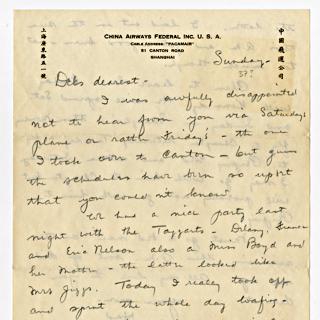 上海廣東路五一號
CHINA AIRWAYS FEDERAL INC. U. S. A.
CABLE ADDRESS: "PACAMAIR"
51 CANTON ROAD
SHANGHAI
中國飛運公司
Sunday-
Debs dearest-
I was awfully disappointed
not to hear from you via Saturday's
plane or rather Friday's - the one
I took down to Canton - but guess
the schedules have been so upset
that you couldn't know
We had a nice party last
night with the Taggarts -
and Eric Nelson also a Miss Boyd and
her Mother - the latter looked like
Mrs Jiggs. Today I really took off
and spent the whole day loafing -